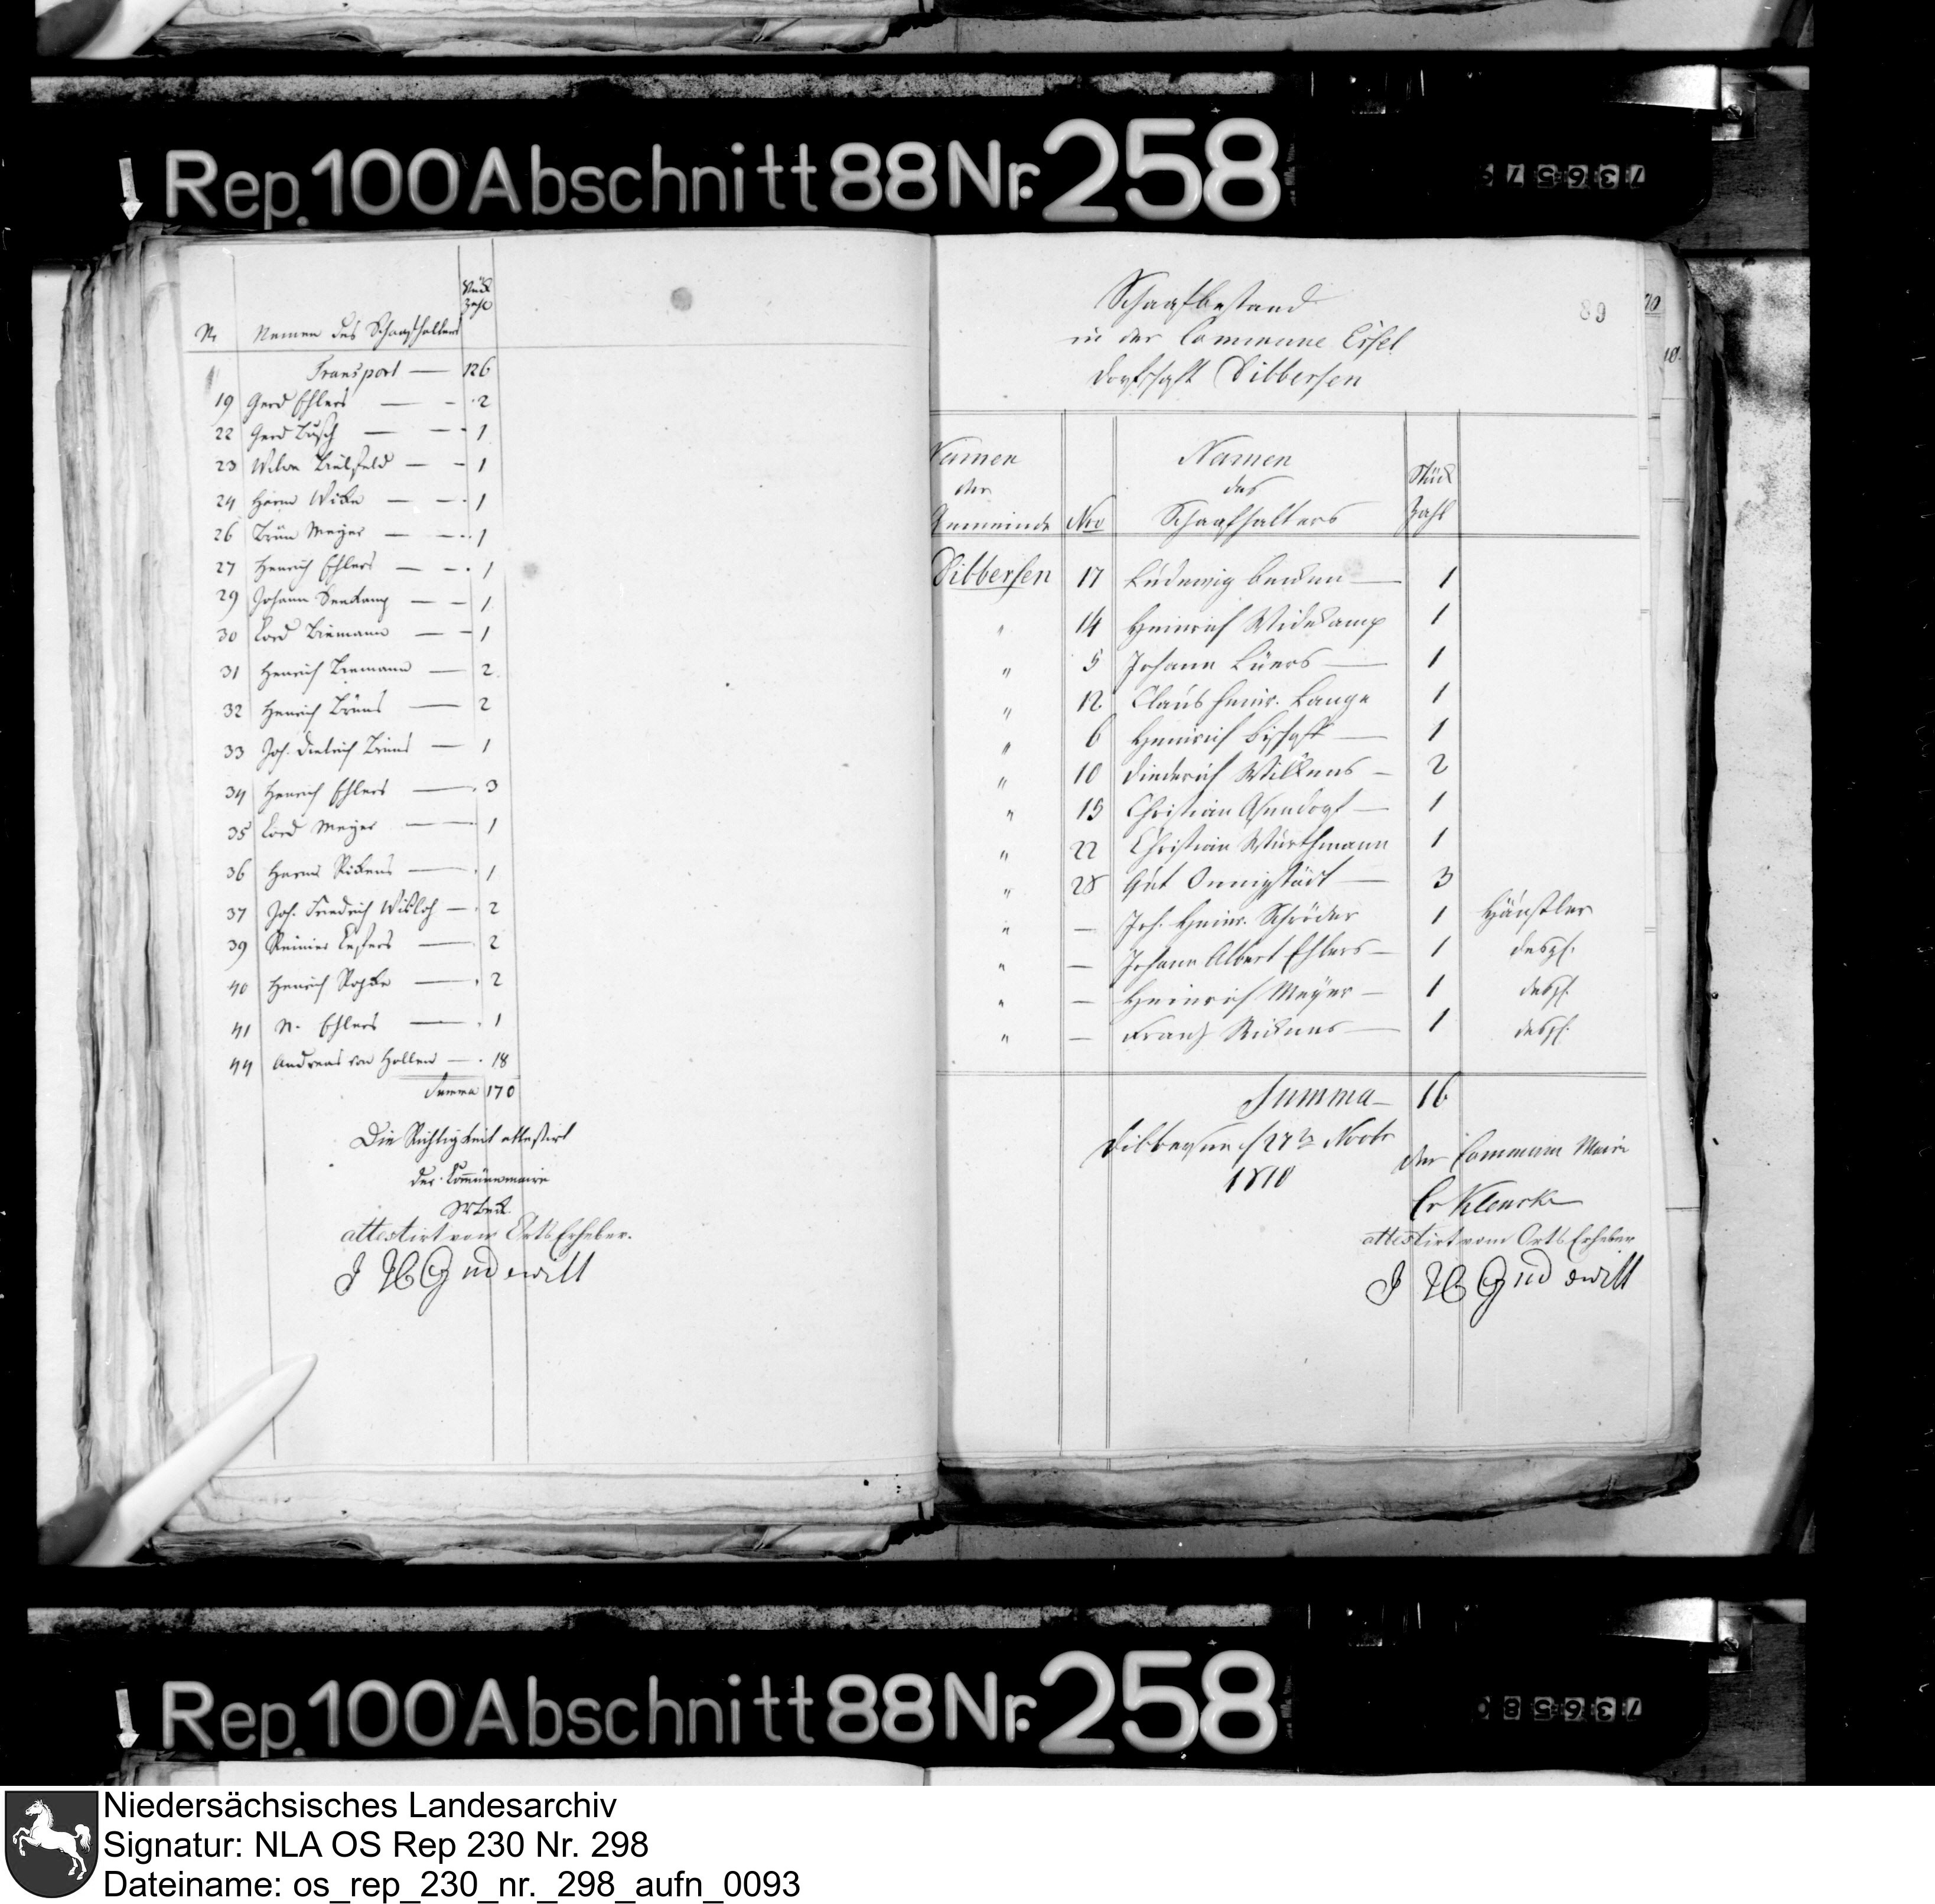 Rep. 100 Abschnitt 88 Nr. 258
Stück
Zahl
Nr Namen des Schaafhalters
Transport — 126
19 Gerd Ehlers — 2
22 Gerd Busch — 1
23 Wilm Bielefeld — 1
24 Harm Wicke — 1
26 Brün Meyer — 1
27 Henrich Ehlers — 1
29 Johann Senkamp — 1
30 Cord Niemann — 1
31 Henrich Niemann — 2
32 Henrich Brüns — 2
33 Joh. Dietrich Brüns — 1
34 Henrich Ehlers — 3
35 Cord Meyer — 1
36 Harm Rickens — 1
37 Joh. Friedrich Wikloh — 2
39 Reinier — 2
40 Henrich Köpke — 2
41 N. Ehlers — 1
44 Andreas von Hollen — 18
Summa 170
Die Richtigkeit attestirt
der Commünemaire
attestirt vom Orts Erheber.
J H Gudewill
89
Schaafbestand
in der Commune Eissel
Dorfschaft Dibbersen
Namen
der
Gemeinde Nro
Namen
des
Schaafhalters
Stück
Zahl
Dibbersen 17 Ludewig — 1
" 14 Heinrich Widekamp 1
" 5 Johann Lüers — 1
" 12. Claus Heinr. Lange 1
" 6 Heinrich Bischoff — 1
" 10 Diederich Willens — 2
" 15 Christian Asendorf — 1
" 22 Christian Würthmann 1
" 28 Gut Donnigstädt — 3
" — Joh. Heinr. Schröder 1 Häusler
" — Johann Albert Ehlers — 1 desgl.
" — Heinrich Meyer — 1 desgl.
" — Franz Rickens — 1 desgl.
Summa — 16
Dibbersen d 27ten Novbr
1810
Der Commune Maire
Cr Klencke
attestirt vom Orts Erheber
J H Gudewill
Rep. 100 Abschnitt 88 Nr. 258
Niedersächsisches Landesarchiv
Signatur: NLA OS Rep 230 Nr. 298
Dateiname: os_rep_230_nr._298_aufn_0093